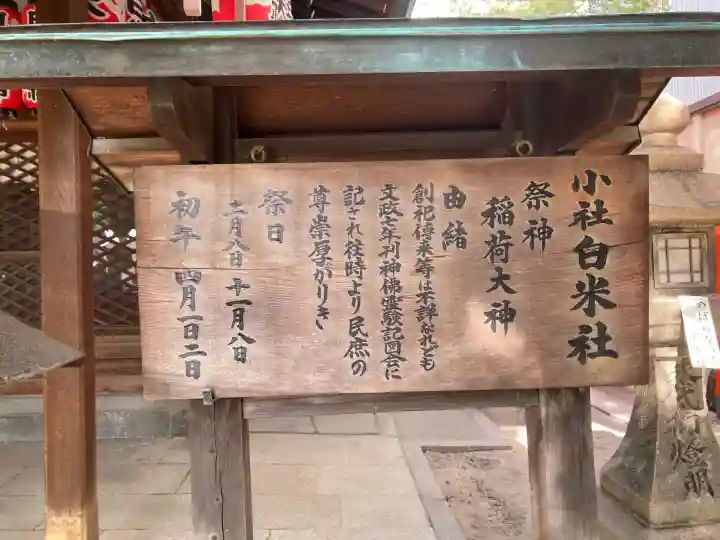 小社白米社
祭神
稲荷大神
由緒
創祀傳来等は不詳なれども
文政七年刊神佛霊験記図会に
記され往時より民庶の
尊崇厚がりき
祭日
二月八日 十一月八日
初午 四月一日二日